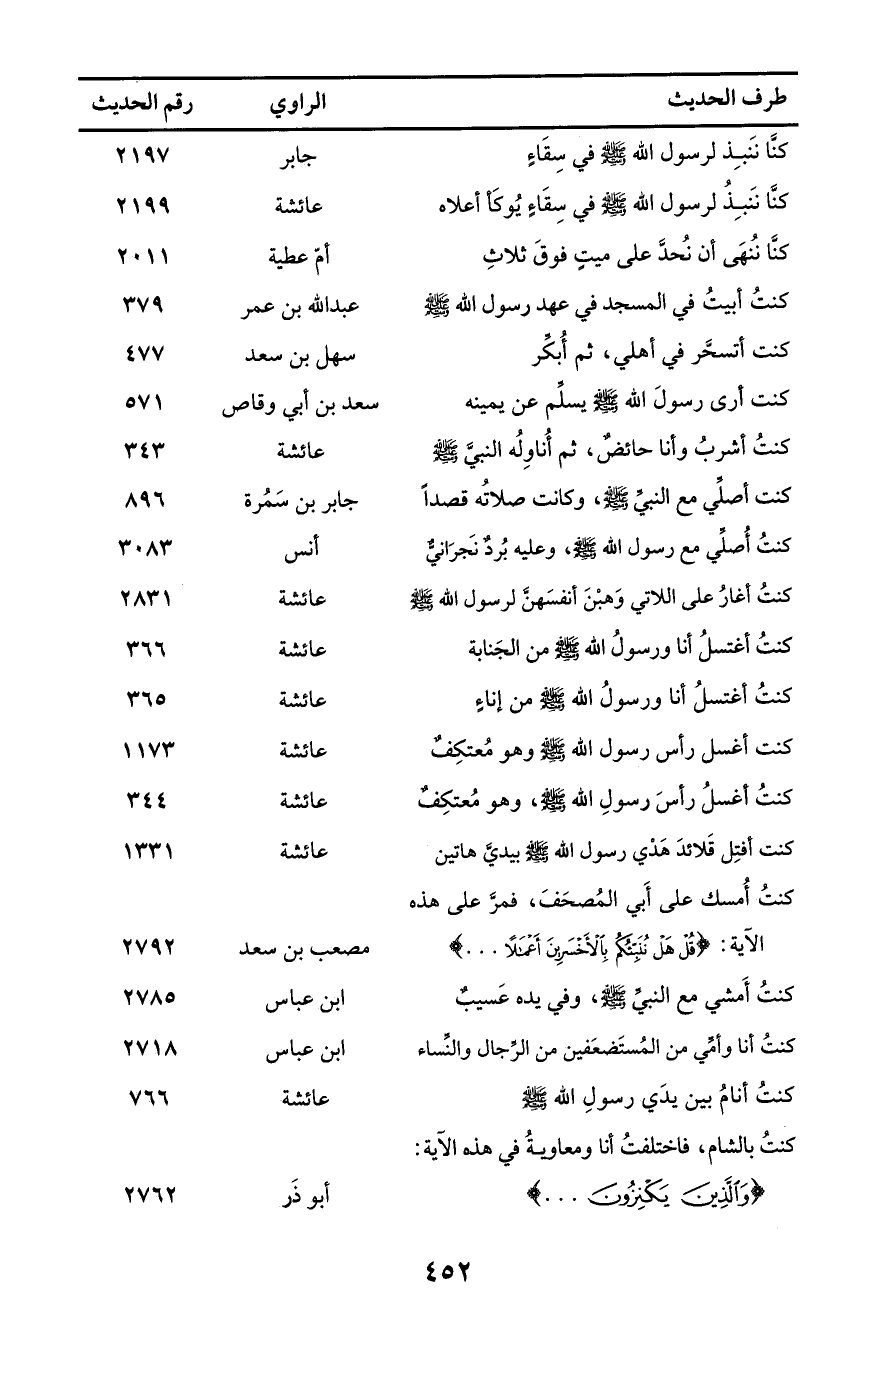 طرف الحديث الراوي رقم الحديث
كنَّا نَنبِذ لرسول الله ﷺ في سِقَاءٍ جابر ٢١٩٧
كنَّا نَنبِذُ لرسول الله ﷺ في سِقَاءٍ يُوكَأ أعلاه عائشة ٢١٩٩
كنَّا نُنهَى أن نُحدَّ على ميتٍ فوقَ ثلاثِ أمّ عطية ٢٠١١
كنتُ أبيتُ في المسجد في عهد رسول الله ﷺ عبدالله بن عمر ٣٧٩
كنت أتسحَّر في أهلي، ثم أُبكِّر سهل بن سعد ٤٧٧
كنت أرى رسولَ الله ﷺ يسلِّم عن يمينه سعد بن أبي وقاص ٥٧١
كنتُ أشربُ وأنا حائضٌ، ثم أُناوِلُه النبيَّ ﷺ عائشة ٣٤٣
كنت أصلِّي مع النبيِّ ﷺ، وكانت صلاتُه قصداً جابر بن سَمُرة ٨٩٦
كنتُ أُصلِّي مع رسول الله ﷺ، وعليه بُردٌ نَجرَانيٌّ أنس ٣٠٨٣
كنتُ أغارُ على اللاتي وَهبْنَ أنفسَهنَّ لرسول الله ﷺ عائشة ٢٨٣١
كنتُ أغتسلُ أنا ورسولُ الله ﷺ من الجَنابة عائشة ٣٦٦
كنتُ أغتسلُ أنا ورسولُ الله ﷺ من إناءٍ عائشة ٣٦٥
كنت أغسل رأس رسول الله ﷺ وهو مُعتكِفٌ عائشة ١١٧٣
كنتُ أغسلُ رأسَ رسولِ الله ﷺ، وهو مُعتكِفٌ عائشة ٣٤٤
كنت أفتِل قَلائدَ هَدْي رسول الله ﷺ بيديَّ هاتين عائشة ١٣٣١
كنتُ أُمسك على أَبي المُصحَفَ، فمرَّ على هذه
الآية: ﴿قُلْ هَلْ نُنَبِّئُكُم بِٱلْأَخْسَرِينَ أَعْمَـٰلًا ...﴾ مصعب بن سعد ٢٧٩٢
كنتُ أَمشي مع النبيِّ ﷺ، وفي يده عَسيبٌ ابن عباس ٢٧٨٥
كنتُ أنا وأمِّي من المُستَضعَفين من الرِّجال والنِّساء ابن عباس ٢٧١٨
كنتُ أنامُ بين يدَي رسولِ الله ﷺ عائشة ٧٦٦
كنتُ بالشام، فاختلفتُ أنا ومعاويةُ في هذه الآية:
﴿وَٱلَّذِينَ يَكْنِزُونَ ...﴾ أبو ذَر ٢٧٦٢
٤٥٢